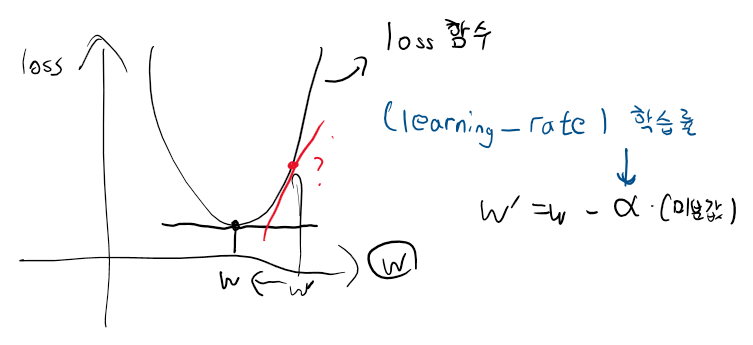 loss 함수
loss
(learning_rate) 학습률
?
w' = w - α·(미분값)
w ← w'
w